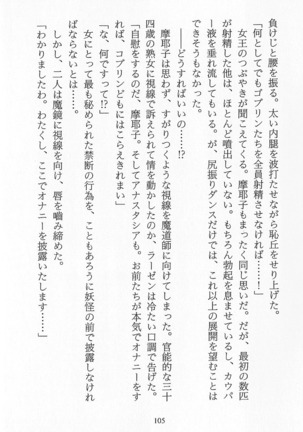 負けじと腰を振る。太い内腿を波打たせながら恥丘をせり上げる。
「何としてでもコブリンたちを全員射精させなければ……！」
女王のつぶやきが聞こえてくる。摩耶子もまったく同じ思いだ。だが、最初の数匹
が射精した他は、ほとんど噴出していない。もちろん勃起を息ませているし、カウパ
ー液を垂れ流してもいる。が、尻振りダンスだけでは、これ以上の展開を望むことは
できそうもなかった。
――どうすればいいの……!?
摩耶子は思わず、すがりつくような視線を魔道師に向けてしまった。官能的な三十
四歳の熟女に視線で訴えられて情を動かしたのか、ラーゼンは冷たい口調で告げた。
「自慰をするのだ、摩耶子。そしてアナスタシアも。お前たちが本気でオナニーをす
れば、コブリンどもにはこらえきれまい」
「な、何ですって!?」
女にとって最も秘められた禁断の行為を、こともあろうに妖怪の前で披露しなけれ
ばならないとは……。
しかし、二人は魔鏡に視線を向け、唇を嚙み締めた。
「わかりましたわ。わたくし、ここでオナニーを披露いたします……」
105